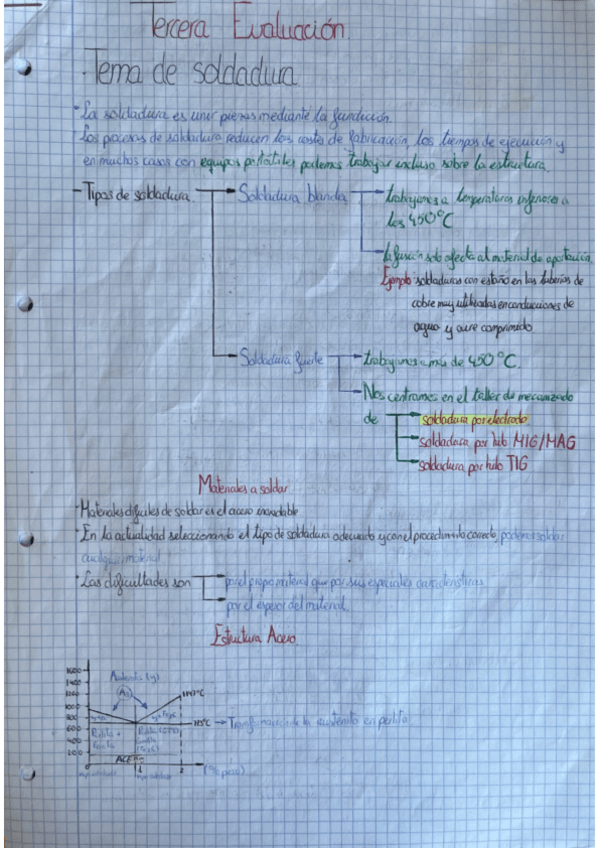 Tercera Evaluación
Tema de soldadura
· La soldadura es unir piezas mediante la fundición.
· Los procesos de soldadura reducen los costes de fabricación, los tiempos de ejecución y
en muchos casos con equipos portatiles podemos trabajar incluso sobre la estructura.
- Tipos de soldadura
Soldadura blanda
trabajamos a temperaturas inferiores a
los 450°C
la fusión solo afecta al material de aportación.
Ejemplo: soldaduras con estaño en las tuberias de
cobre muy utilizadas en conducciones de
agua y aire comprimido
Soldadura fuerte
trabajamos a mas de 450°C.
Nos centramos en el taller de mecanizado
de
soldadura por electrodo
soldadura por hilo MIG/MAG
soldadura por hilo TIG
Materiales a soldar
· Materiales dificiles de soldar es el acero inoxidable
· En la actualidad seleccionando el tipo de soldadura adecuado y con el procedimiento correcto, podemos soldar
cualquier material
· Las dificultades son
por el propio material que por sus especiales caracteristicas
por el espesor del material.
Estructura Acero.
1600
1400
1200
1000
800
600
400
200
0
Austenita (γ)
1147°C
723°C → Transformación de la austenita en perlita
Perlita +
ACERO
1
2